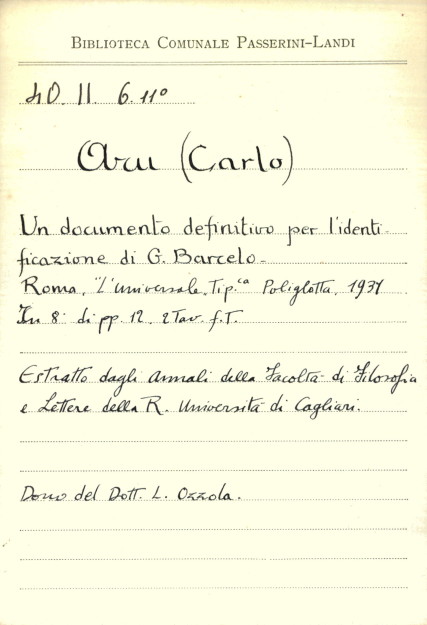 BIBLIOTECA COMUNALE PASSERINI-LANDI
4O. II. 6. 11°
Aru (Carlo)
Un documento definitivo per l'identi-
ficazione di G. Barcelo-
Roma, "L'Universale" Tip.ca Poliglotta, 1931
In 8° di pp. 12. 2 Tav. f.T.
Estratto dagli Annali della Facoltà di Filosofia
e Lettere della R. Università di Cagliari.
Dono del Dott. L. Ozzola.